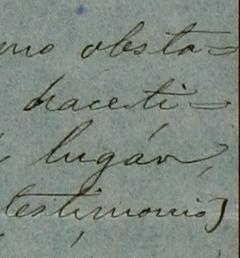 obsta=
haceti=
lugár,
testimonio